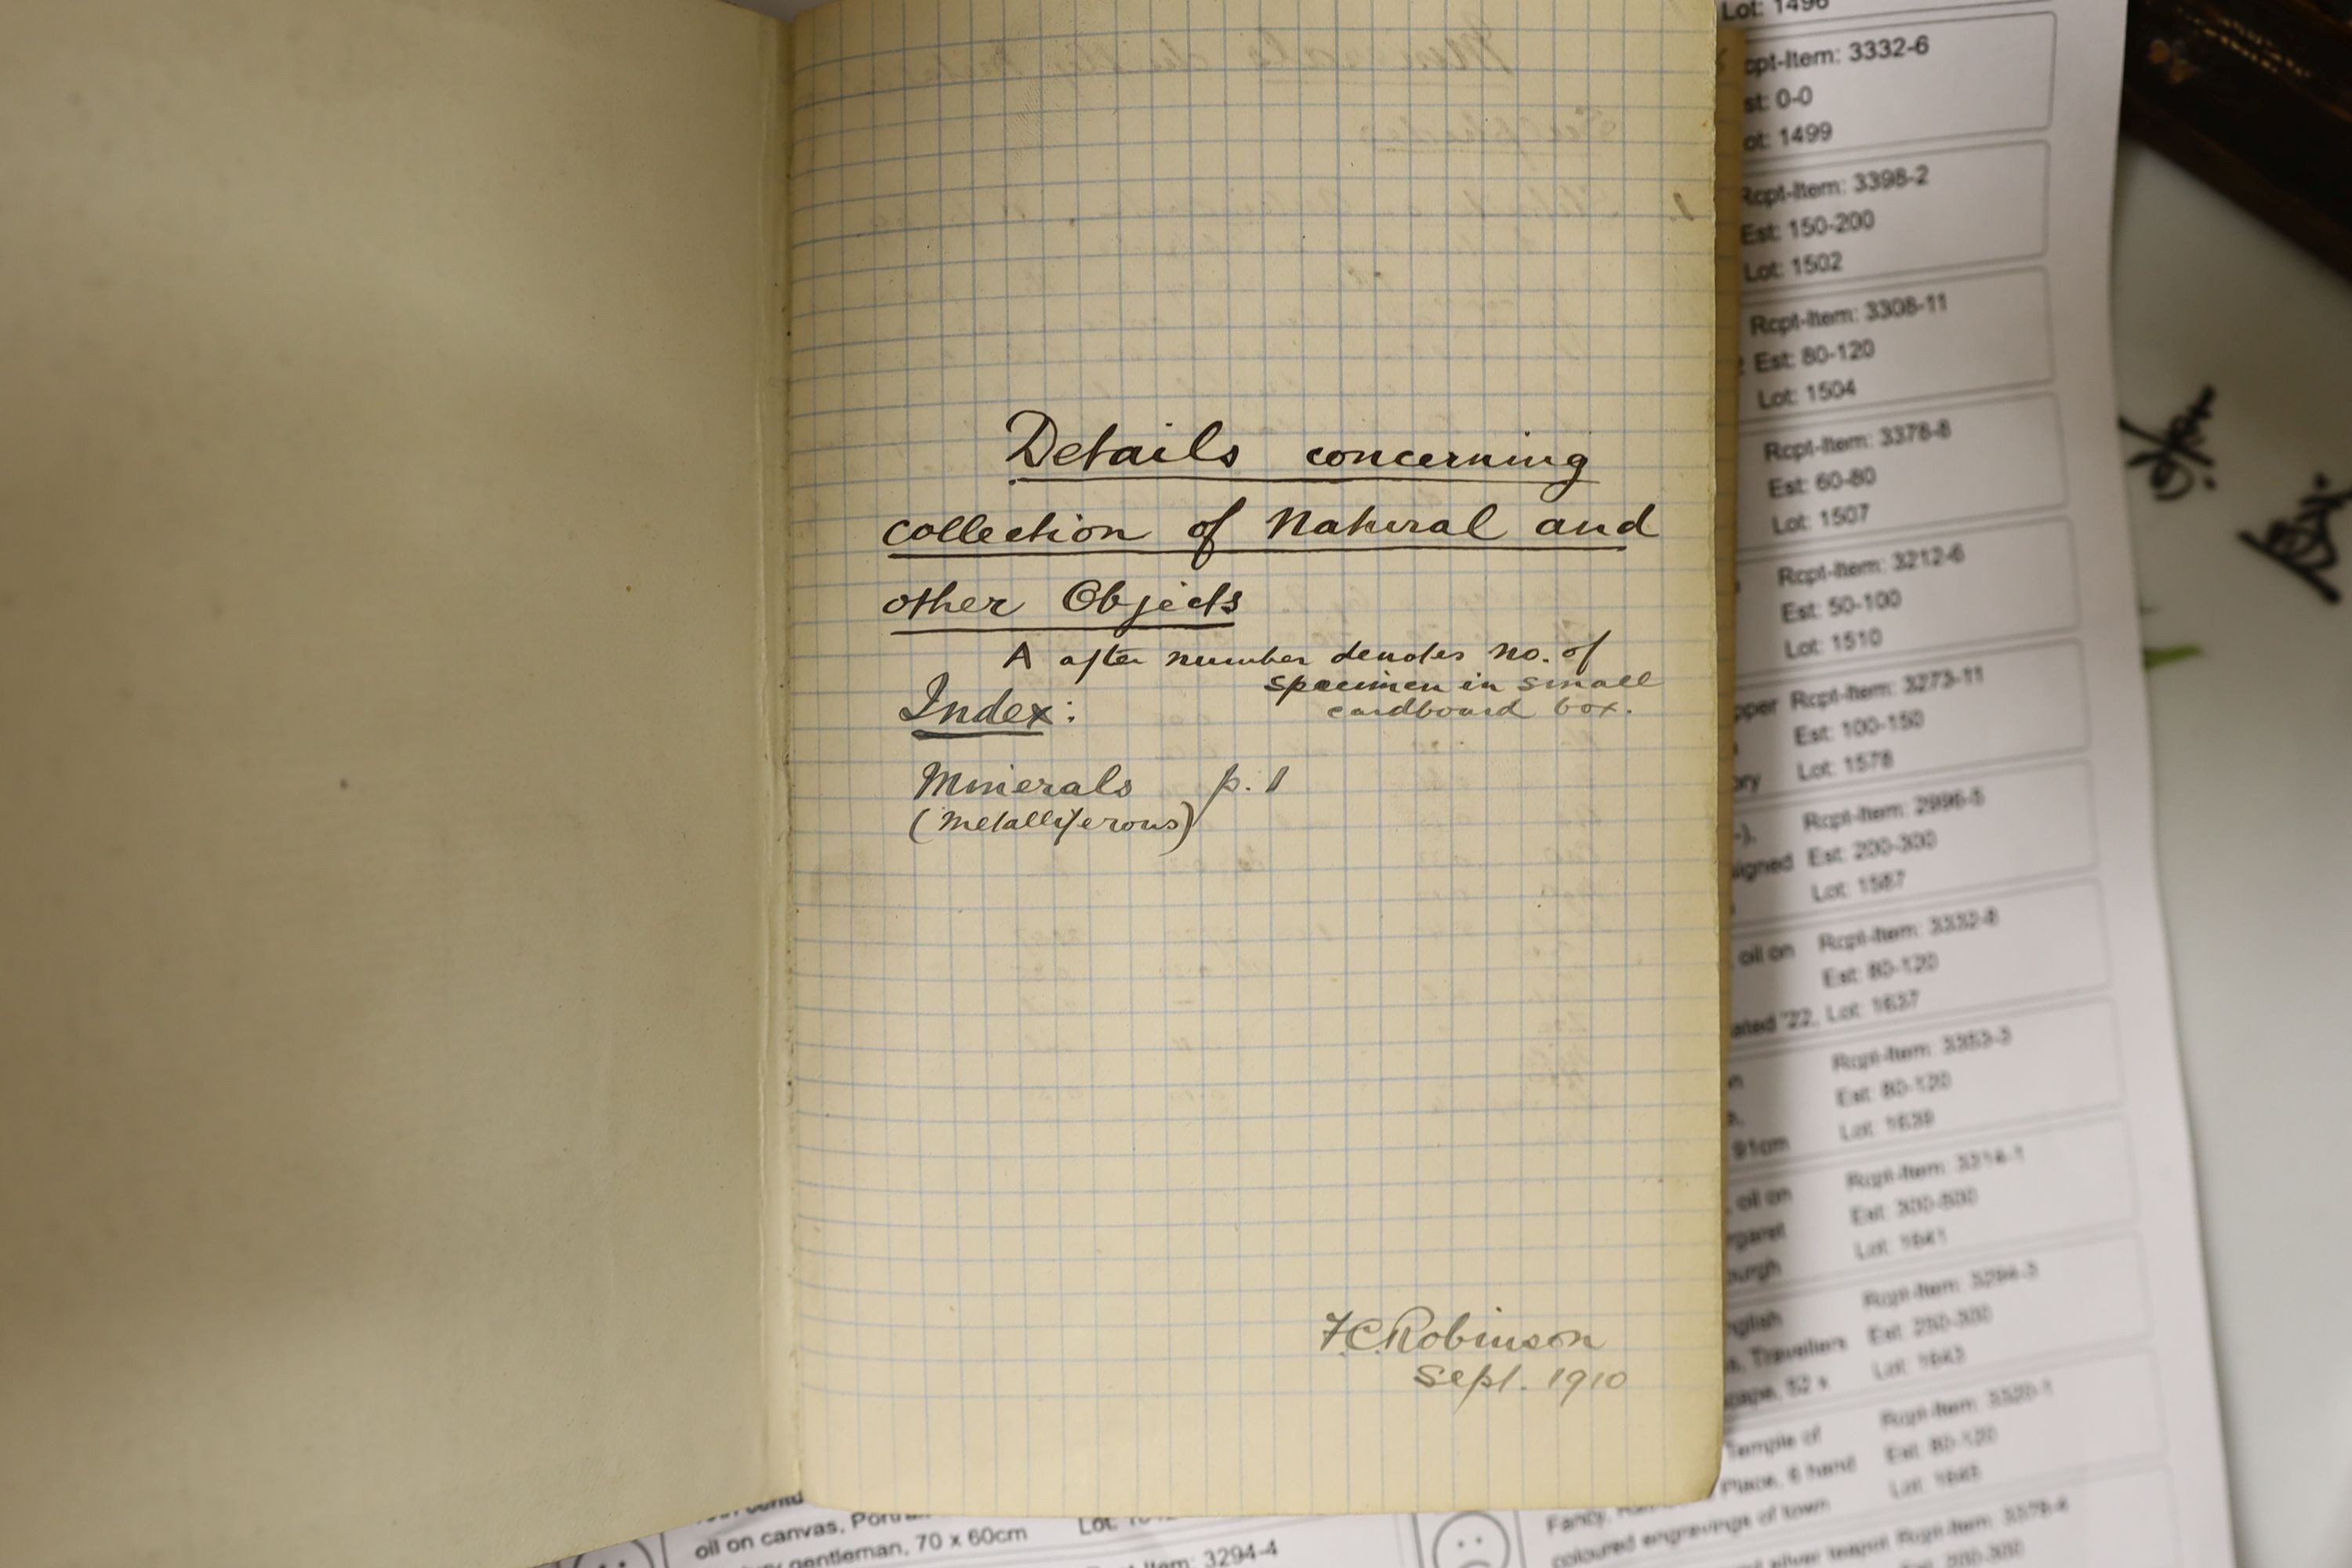 Details concerning
collection of Natural and
other Objects
A after number denotes no. of
specimen in small
cardboard box.
Index:
Minerals p. 1
(Metalliferous)
F.C. Robinson
Sept. 1910
Lot: 1496
cpt-Item: 3332-6
st: 0-0
ot: 1499
Rcpt-Item: 3398-2
Est: 150-200
Lot: 1502
Rcpt-Item: 3308-11
Est: 80-120
Lot: 1504
Rcpt-Item: 3378-8
Est: 60-80
Lot: 1507
Rcpt-Item: 3212-6
Est: 50-100
Lot: 1510
pper Rcpt-Item: 3273-11
Est: 100-150
ory Lot: 1578
Rcpt-Item: 2996-5
igned Est: 200-300
Lot: 1587
oil on Rcpt-Item: 3332-8
Est: 80-120
ated '22, Lot: 1637
Rcpt-Item: 3353-3
Est: 80-120
91cm Lot: 1639
oil on Rcpt-Item:
garet Est:
burgh Lot: 1641
nglish Rcpt-Item: 3294-3
s, Travellers Est:
cape, 52 x Lot: 1643
Temple of Rcpt-Item:
Place, 6 hand Est: 80-120
coloured engravings of town Lot:
silver teapot Rcpt-Item:
oil on canvas, Portra Lot:
gentleman, 70 x 60cm
Item: 3294-4